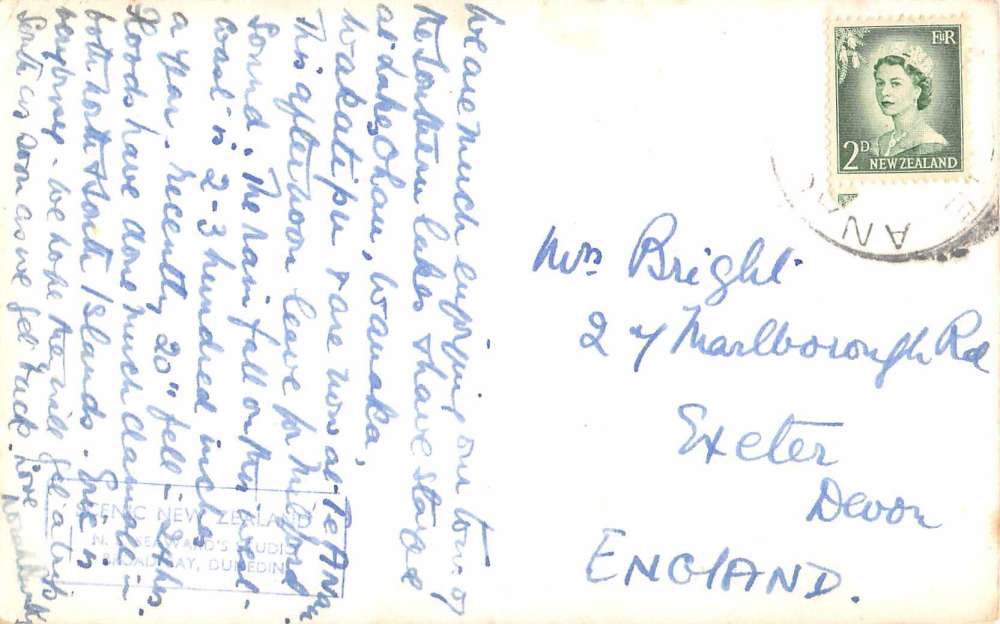 We are much enjoying our tour of
the Southern lakes & have stayed
at Lakes Ohau, Wanaka,
Wakatipu & are now at Te ANAU.
This afternoon leave for Milford
Sound. The rain fall on this west
coast is 2-3 hundred inches
a year. Recently 20" fell - & the
floods have done much damage in
both North & South Islands. Eric is
very busy - we hope they will get a trip
South as soon as we get back. Love
SCENIC NEW ZEALAND
N. SEAWARD'S STUDIO
BROADWAY, DUNEDIN
E II R
2D NEW ZEALAND
AN
Mrs Bright
27 Marlborough Rd
Exeter
Devon
ENGLAND.